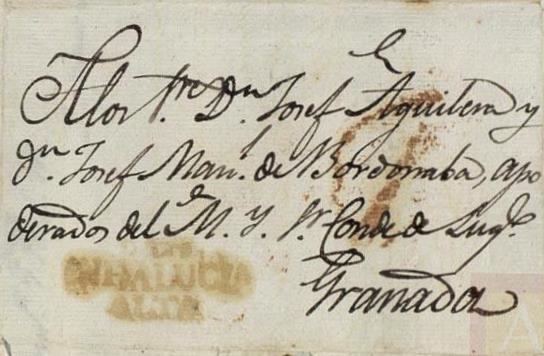 A los S.res D.n Josef Aguilera y
D.n Josef Man.l de Bordonaba, apo
derados del M. Y. S.r Conde de Luq.e
Granada
ANDALUCIA
ALTA
A